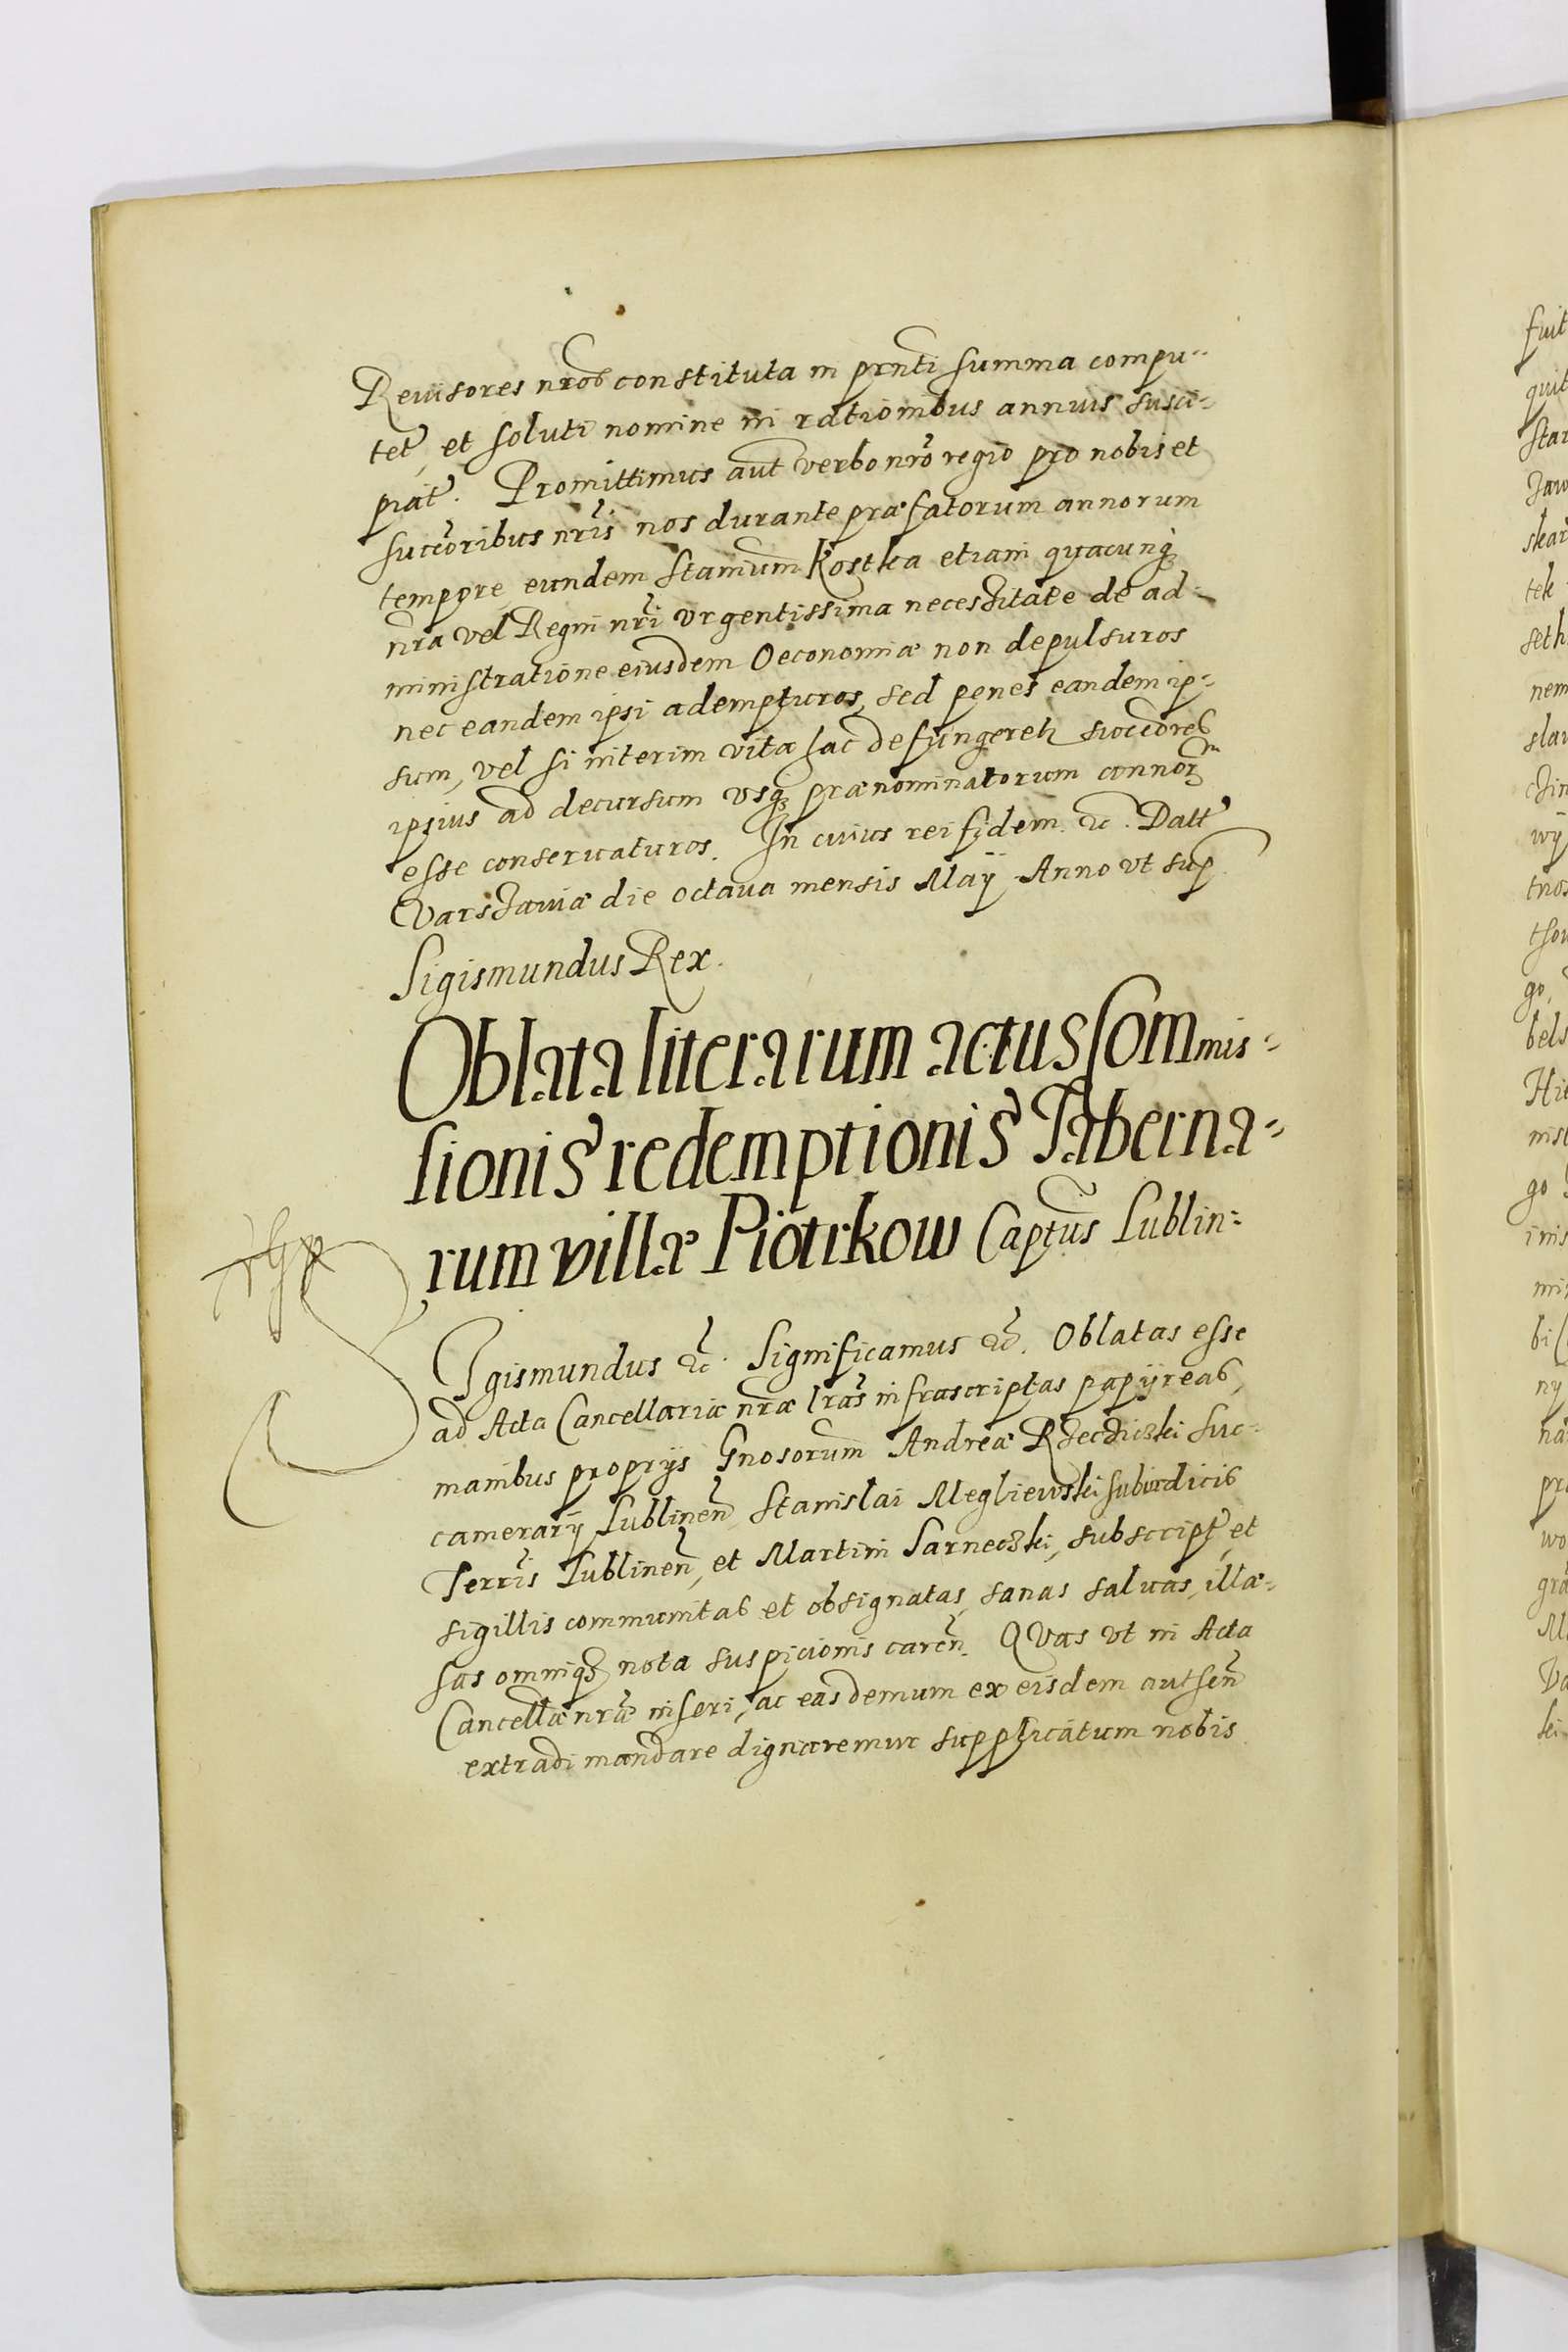 Reuisores nros constituta in prnti summa compu-
tet, et soluti nomine in rationibus annuis susci-
piat. Promittimus aut verbo nro regio pro nobis et
succoribus nris nos durante præfatorum annorum
tempore eundem Stanium Kostka etiam quacunq
nra vel Regni nri vrgentissima necessitate de ad-
ministratione eiusdem Oeconomiæ non depulsuros
nec eandem ipsi adempturos, sed penes eandem ip-
sum, vel si interim vita hac defungereth succores
ipsius ad decursum vsq prænominatorum annor
esse conseruaturos. In cuius rei fidem etc. Datt
Varschauiæ die octaua mensis Maÿ Anno vt sup.
Sigismundus Rex.
Oblata literarum actus Commis-
sionis redemptionis Taberna-
rum villæ Piotrkow Captus Lublin:
SIgismundus etc. Significamus etc. Oblatas esse
ad Acta Cancellariæ nræ lras infrascriptas papÿreas,
manibus proprÿs Gnosorum Andreæ Rzeczicki Suc-
camerarÿ Lublinen Stanislai Megliewski subiudicis
Terris Lublinen, et Martini Sarneczki, subscript, et
sigillis communitas et obsignatas, sanas saluas, illæ-
sas omniq nota suspicionis caren. QVas vt in Acta
Cancellæ nræ inseri, ac eas demum ex eisdem autsen
extradi mandare dignaremur supplicatum nobis
fuit
quit
tek
seth
nem
wÿ
go,
bels
go
ny